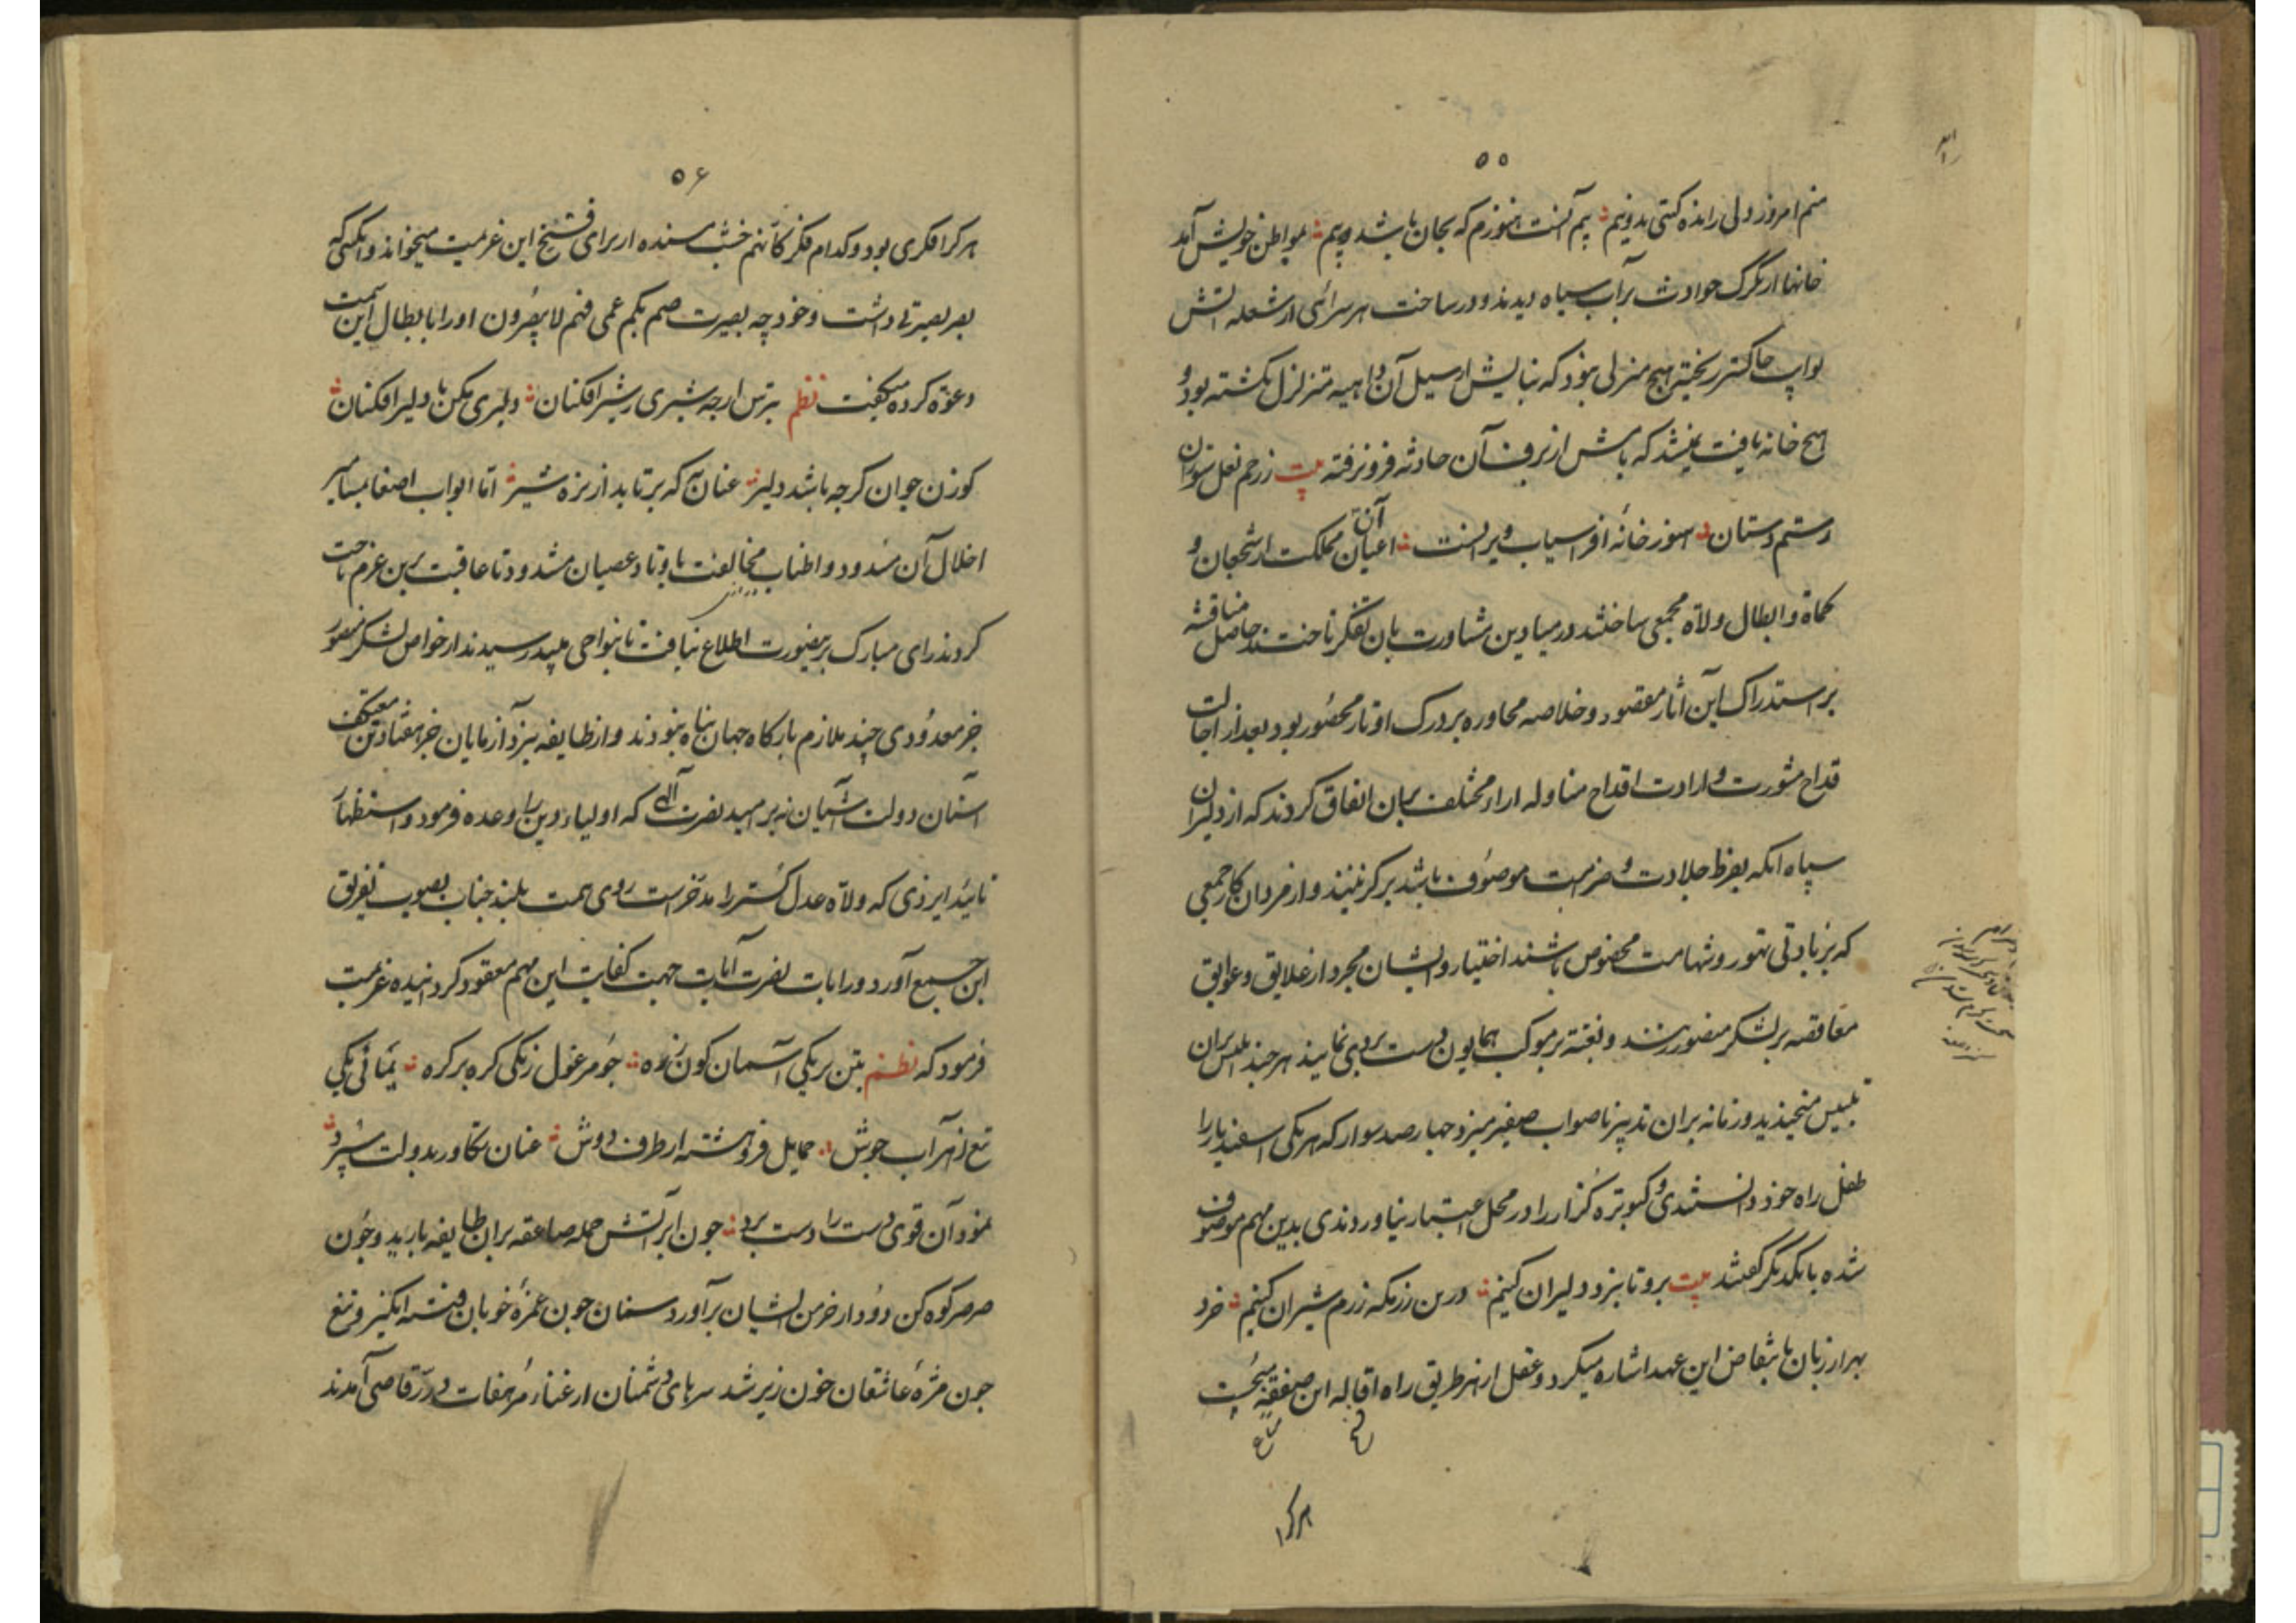 ۵۵
منم امروز دلی رانده کتی بدونیم بیم آنست هنوزم که بجان باشد بیم بمواطن خویش آمد
خانها از گرک حوادث برآب سیاه دیدند و در ساخت هر سرائی از شعله اتش
خاکستر ریخته هیچ منزلی نبود که بنایش از سیل آن داهیه متزلزل نکشته بود و
هیچ خانه یافت نمیشد که باش از برف آن حادثه فرو نرفته بیت ز زخم نعل ستوران
رستم دستان هنوز خانهٔ افراسیاب ویرانست اعیان آن مملکت از شجعان و
کماة و ابطال و لاة مجمعی ساختند در میادین مشاورت بان تفکر تاختند حاصل مناقشه
بر استدراک این آثار مقصود و خلاصه محاوره بر درک اوتار محصور بود بعد از اجالت
قداح مشورت و ارادت اقداح مناوله اراء مختلف بران اتفاق کردند که از دلیران
سپاه انکه بفرط جلادت و ضریمت موصوف باشد بر کزینند و از مردان کار جمعی
که بزیادتی تهور و شهامت مخصوص باشند اختیار و ایشان مجرد از علایق و عوایق
مغافصه بر لشکر منصور زنند و بغتة بر موکب همایون دست بردی نمایند هر چند ابلیس بران
تلبیس میخندید و زمانه بران تدبیر ناصواب صفیر میزد چهارصد سوار که هر یکی اسفندیار را
طفل راه خود دانستندی و کبوتره کنار را در محل اعتبار نیاوردندی بدین مهم موصوف
شده بایکدیکر کفتند بیت برو تا نبرد دلیران کنیم درین رزمکه رزم شیران کنیم خرد
بهزار زبان بانتقاض این عهد اشاره میکرد و عقل از هر طریق راه اقاله این صفقه میجست
هرکرا
۵۶
هر کرا فکری بود و کدام فکر کأنهم خشب مسنده از برای فسخ این عزیمت میخواند و انکس که
بصر بصیرتی داشت و خود چه بصیرت صم بکم عمی فهم لا یبصرون او را بابطال این سمت
دعوة کرده میکفت نظم بترس ار چه شیری ز شیرافکنان دلیری مکن با دلیرافکنان
کوزن جوان کرچه باشد دلیر عنان به که برتابد از نره شیر اما ابواب اصغا بمسامیر
اخلال آن مسدود و اطناب مخالفت باوتاد عصیان مشدود تا عاقبت برین عزم تاخت
کردند رای مبارک برینصورت اطلاع نیافت تا بنواحی رسیدند از خواص لشکر منصور
جز معدودی چند ملازم بارکاه جهان پناه نبودند و از طایفه نبرد آزمایان جز هفتاد تن معتکف
آستان دولت آشیان نه بر امید نصرت آلهی که اولیاء دین را وعده فرمود و استظهار
تائید ایزدی که ولاة عدل کستر را مدخرست روی همت بلند جناب بصوب تفریق
این جمع آورد و رایات نصرت آیات جهت کفایت این مهم معقود کردانیده عزیمت
فرمود که نظم بتن بر یکی آسمان کون زره چو مرغول زنکی کره بر کره یمانی یکی
تیغ زهرآب جوش حمایل فروهشته از طرف دوش عنان تکاور بدولت سپرد
نمود آن قوی دست را دست برد جون ابر آتش حمله صاعقه بران طایفه بارید و چون
صرصر کوه کن دود از خرمن ایشان برآورد سنان جون غمزهٔ خوبان فتنه انکیز و تیغ
جون مژهٔ عاشقان خون ریز شد سرهای دشمنان از غناء مرهفات در رقاصی آمدند